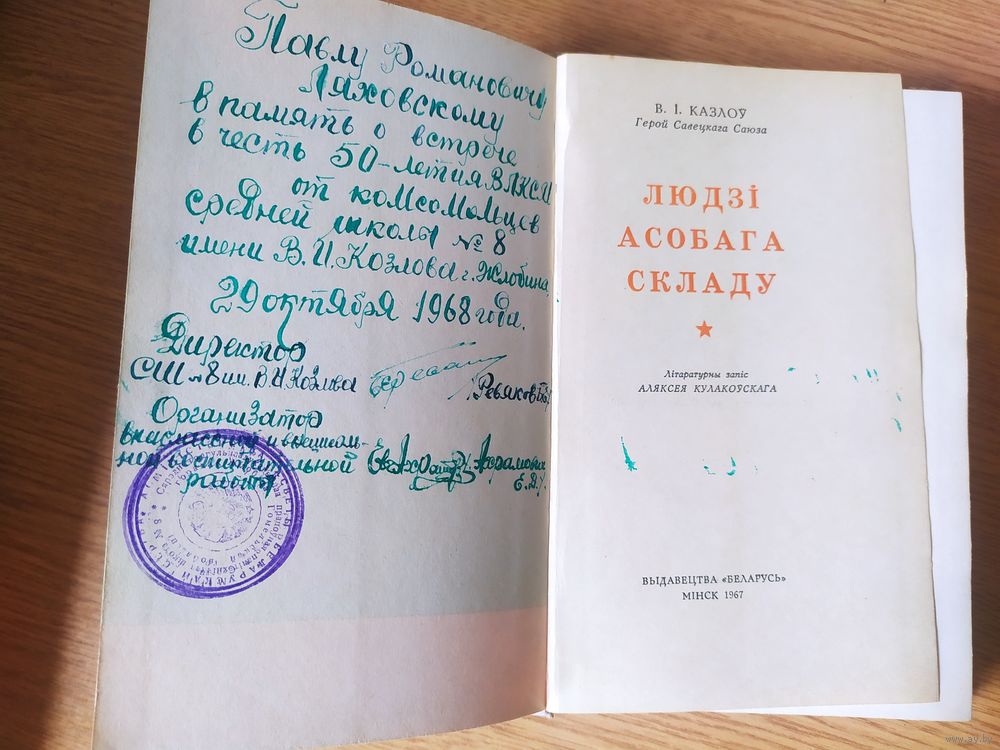 Павлу Романовичу
Ляховскому
в память о встрече
в честь 50-летия ВЛКСМ
от комсомольцев
средней школы № 8
имени В.И.Козлова г.Жлобина,
29 октября 1968 года.
Директор
СШ №8 им. В И Козлова Ревяков
Организатор
внеклассной и внешколь-
ной воспитательной Абрамович
работы Е.Д.
В. І. КАЗЛОЎ
Герой Савецкага Саюза
ЛЮДЗІ
АСОБАГА
СКЛАДУ
Літаратурны запіс
АЛЯКСЕЯ КУЛАКОЎСКАГА
ВЫДАВЕЦТВА «БЕЛАРУСЬ»
МІНСК 1967
www.ay.by